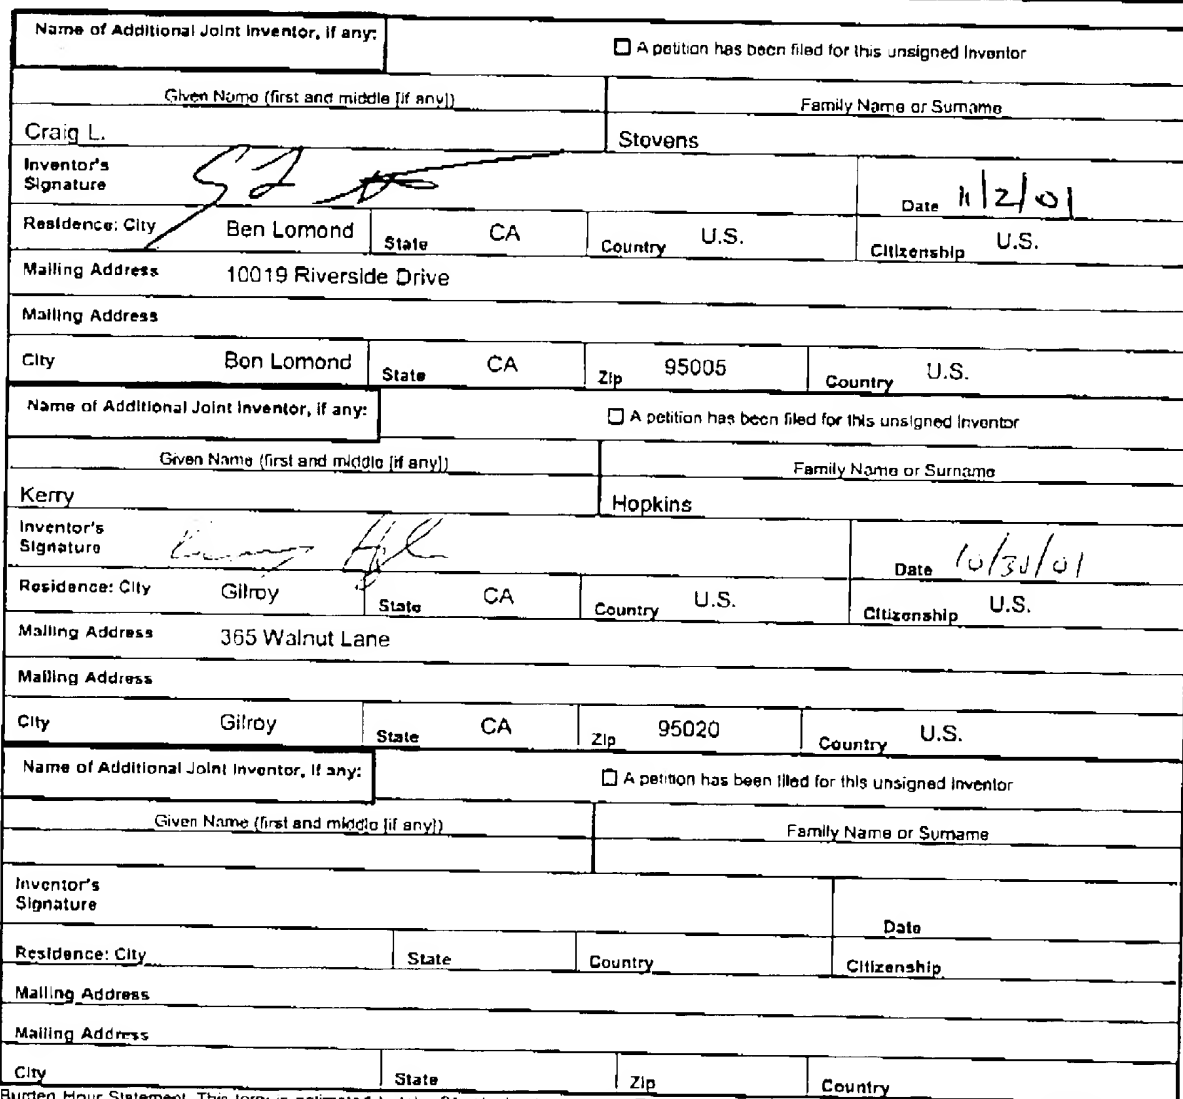 Name of Additional Joint Inventor, if any:
☐ A petition has been filed for this unsigned Inventor
Given Name (first and middle [if any]) Family Name or Surname
Craig L. Stevens
Inventor's
Signature Date 11/2/01
Residence: City Ben Lomond State CA Country U.S. Citizenship U.S.
Mailing Address 10019 Riverside Drive
Mailing Address
City Ben Lomond State CA Zip 95005 Country U.S.
Name of Additional Joint Inventor, if any:
☐ A petition has been filed for this unsigned Inventor
Given Name (first and middle [if any]) Family Name or Surname
Kerry Hopkins
Inventor's
Signature Date 10/30/01
Residence: City Gilroy State CA Country U.S. Citizenship U.S.
Mailing Address 365 Walnut Lane
Mailing Address
City Gilroy State CA Zip 95020 Country U.S.
Name of Additional Joint Inventor, if any:
☐ A petition has been filed for this unsigned Inventor
Given Name (first and middle [if any]) Family Name or Surname
Inventor's
Signature Date
Residence: City State Country Citizenship
Mailing Address
Mailing Address
City State Zip Country
Burden Hour Statement: This form is estimated